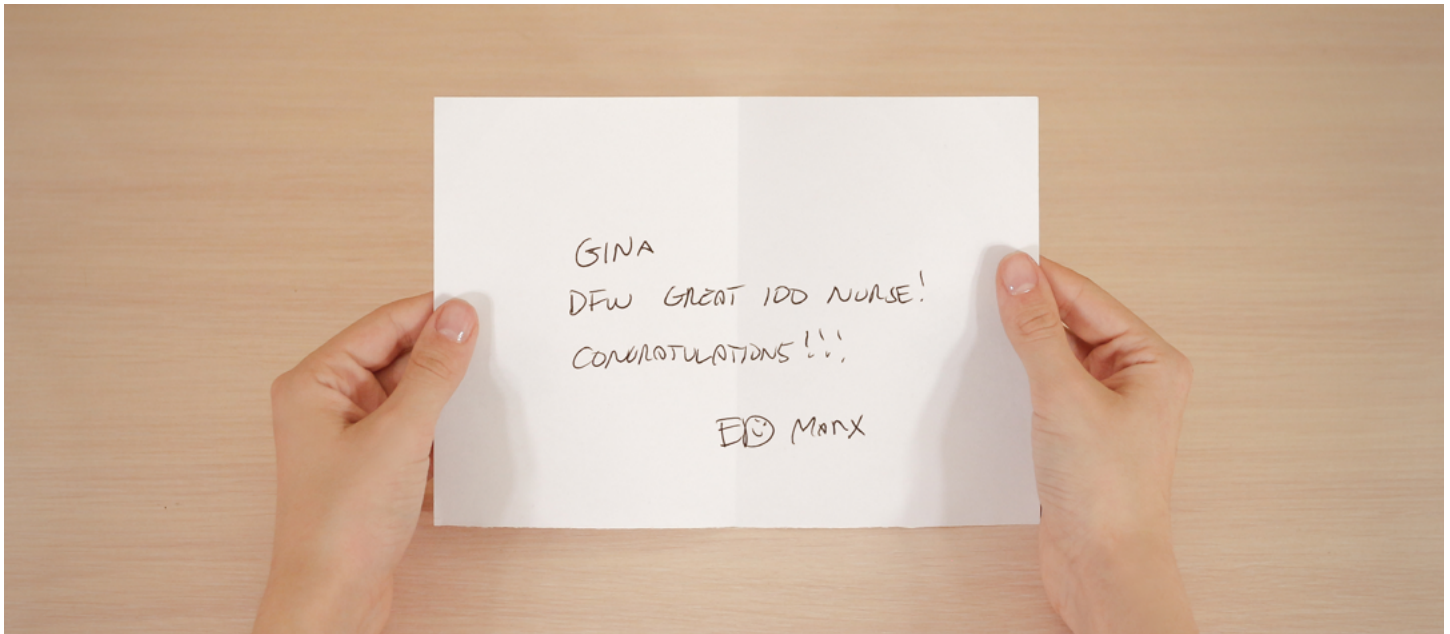 GINA
DFW GREAT 100 NURSE!
CONGRATULATIONS!!!
ED MARX